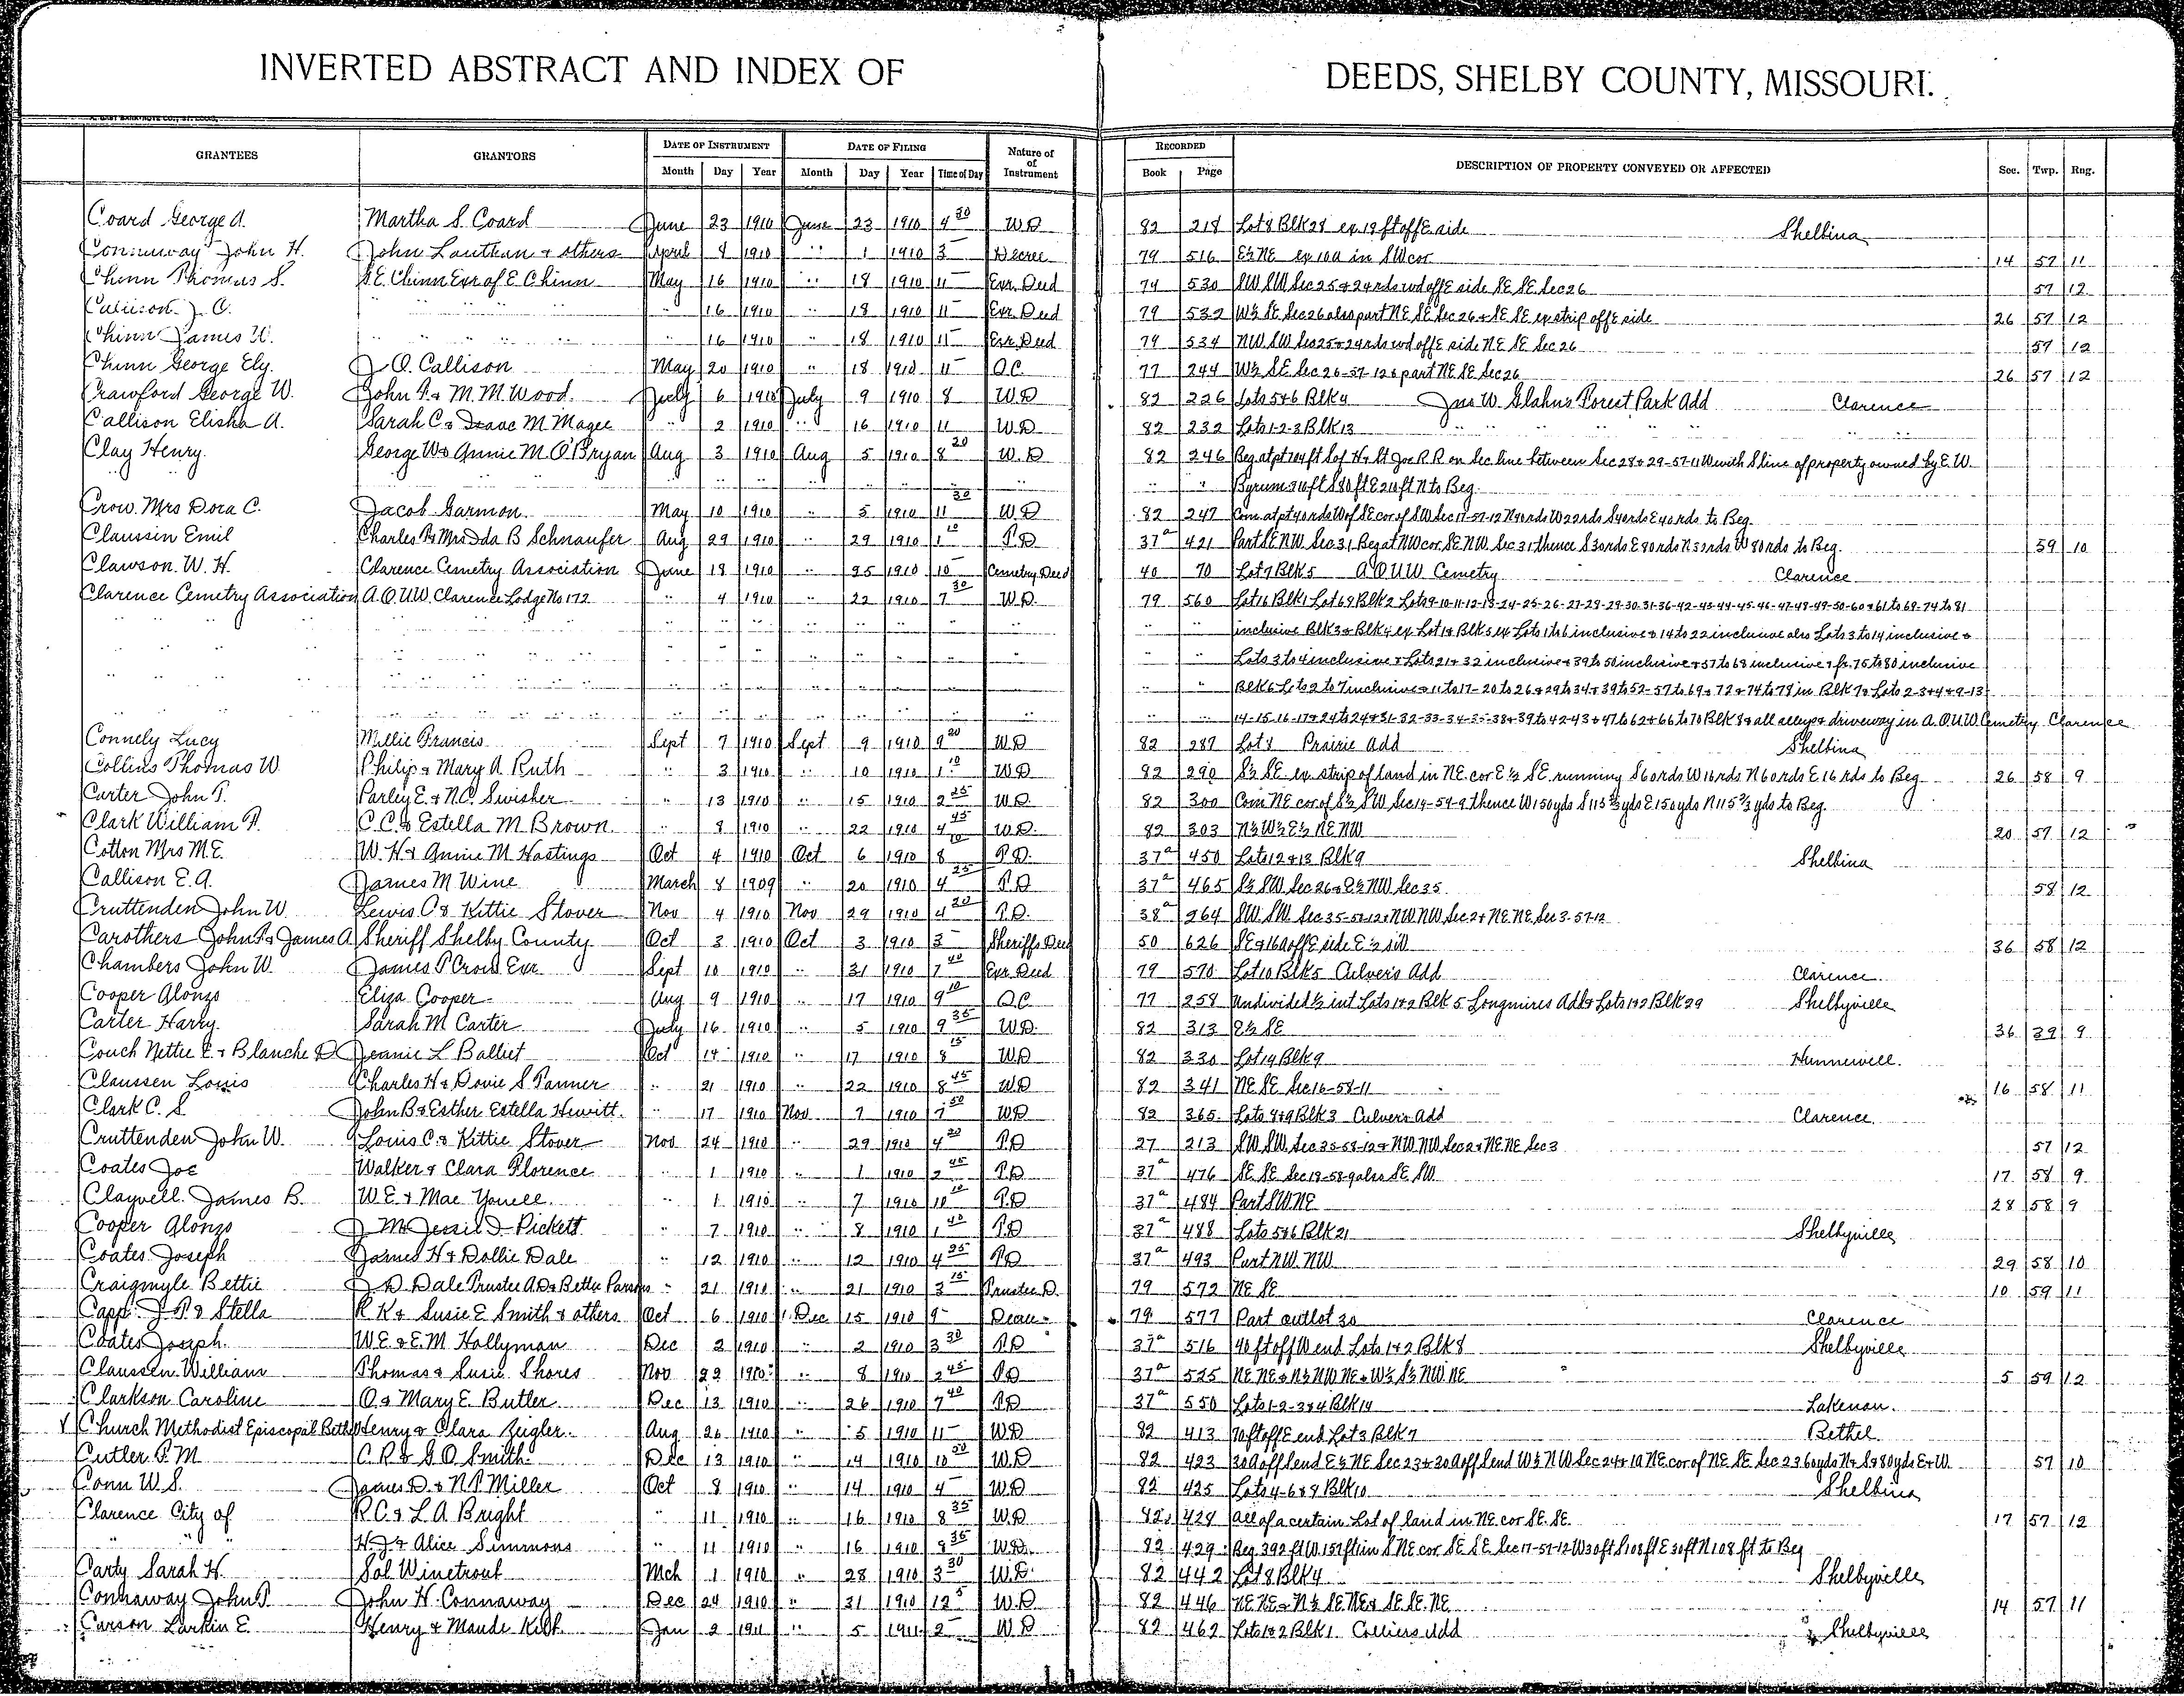 INVERTED ABSTRACT AND INDEX OF DEEDS, SHELBY COUNTY, MISSOURI.
GRANTEES GRANTORS DATE OF INSTRUMENT DATE OF FILING Nature of of Instrument RECORDED DESCRIPTION OF PROPERTY CONVEYED OR AFFECTED Sec. Twp. Rng.
Month Day Year Month Day Year Time of Day Book Page
Coard George A. Martha S. Coard June 23 1910 June 23 1910 4 30 W.D 82 218 Lot 8 Blk 28 ex 19 ft off E side Shelbina
Connaway John H. John Lauthan & others April 8 1910 " 1 1910 3 - Decree 79 516 E½ NE ex 10a in SW cor 14 57 11
Chinn Thomas S. S.E. Chinn Exr of E Chinn May 16 1910 " 18 1910 11 - Exr. Deed 79 530 SW SW Sec 25 & 24 rds wd off E side SE SE Sec 26 57 12
Callison J. O. " " " 16 1910 " 18 1910 11 - Exr. Deed 79 532 W½ SE Sec 26 also part NE SE Sec 26 & SE SE ex strip off E side 26 57 12
Chinn James W. " " " 16 1910 " 18 1910 11 - Exr. Deed 79 534 NW SW Sec 25 & 24 rds wd off E side NE SE Sec 26 57 12
Chinn George Ely. J O. Callison May 20 1910 " 18 1910 11 - Q.C. 77 244 W½ SE Sec 26-57-12 & part NE SE Sec 26 26 57 12
Crawford George W. John F. & M. M. Wood July 6 1910 July 9 1910 8 W.D 82 226 Lots 5 & 6 Blk 4 Jno W. Glahns Forest Park Add Clarence
Callison Elisha A. Sarah C & Isaac M Magee " 2 1910 " 16 1910 11 W.D. 82 232 Lots 1-2-3 Blk 13 " " " "
Clay Henry. George W & Annie M. O'Bryan Aug 3 1910 Aug 5 1910 8 20 W.D 82 246 Beg at pt 104 ft S of H & St Joe R R on Sec line between Sec 28 & 29-57-11 W with S line of property owned by E. W.
" " " " " " " " Byrum 210 ft S 80 ft E 210 ft N to Beg.
Crow Mrs Dora C. Jacob Garmon May 10 1910 " 5 1910 11 30 W.D 82 247 Com at pt 40 rds W of SE cor of SW Sec 17-57-12 N 40 rds W 22 rds S 40 rds E 40 rds to Beg.
Claussin Emil Charles R & Mrs Ida B Schnaufer Aug 29 1910 " 29 1910 1 10 T.D 37a 421 Part SE NW Sec 31 Beg at NW cor SE NW Sec 31 thence S 30 rds E 80 rds N 30 rds W 80 rds to Beg. 59 10
Clawson W. H. Clarence Cemetry Association June 18 1910 " 25 1910 10 - Cemetry Deed 40 70 Lot 7 Blk 5 A.O.U.W. Cemetry Clarence
Clarence Cemetry Association A.O.U.W. Clarence Lodge No 172 " 4 1910 " 22 1910 7 30 W.D. 79 560 Lot 16 Blk 1 Lot 69 Blk 2 Lots 9-10-11-12-13-24-25-26-27-28-29-30-31-36-42-43-44-45-46-47-48-49-50-60 & 61 to 69-74 to 81
" " " " " " inclusive Blk 3 & Blk 4 ex Lot 1 & Blk 5 ex Lots 1 to 6 inclusive & 14 to 22 inclusive also Lots 3 to 14 inclusive &
" " " " " " Lots 3 to 4 inclusive & Lots 21 & 32 inclusive & 39 to 50 inclusive & 57 to 68 inclusive & fr. 75 to 80 inclusive
" " " " " " Blk 6 Lots 2 to 7 inclusive & 11 to 17-20 to 26 & 29 to 34 & 39 to 52-57 to 69 & 72 & 74 to 78 in Blk 7 & Lots 2-3 & 4 & 9-13
" " " " " " 14-15-16-17 & 24 to 29 & 31-32-33-34-35-38 & 39 to 42-43 & 47 to 62 & 66 to 70 Blk 8 & all alleys & driveway in A.O.U.W. Cemetry Clarence
Connely Lucy Millie Francis Sept 7 1910 Sept 9 1910 9 20 W.D 82 287 Lot 8 Prairie Add Shelbina
Collins Thomas W Philip & Mary A. Ruth " 3 1910 " 10 1910 1 10 W.D 82 290 S½ SE ex strip of land in NE cor E½ SE running S 60 rds W 16 rds N 60 rds E 16 rds to Beg. 26 58 9
Carter John T. Parley E. & N.C. Swisher " 13 1910 " 15 1910 2 25 W.D. 82 300 Com NE cor of S½ SW Sec 14-59-9 thence W 150 yds S 115⅔ yds E 150 yds N 115⅔ yds to Beg.
Clark William P. C. C. & Estella M Brown " 8 1910 " 22 1910 4 45 W.D. 82 303 N½ W½ E½ NE NW 20 57 12
Cotton Mrs M.E. W. H & Annie M Hastings Oct 4 1910 Oct 6 1910 8 10 T.D. 37a 450 Lots 12 & 13 Blk 9 Shelbina
Callison E. A. James M Wine March 8 1909 " 20 1910 4 25 T.D 37a 465 S½ SW Sec 26 & E½ NW Sec 35 58 12
Cruttenden John W. Lewis C & Kittie Stover Nov 4 1910 Nov 29 1910 4 20 T.D. 38a 264 SW SW Sec 35-58-12 & NW NW Sec 2 & NE NE Sec 3-57-12
Carothers John F & James A Sheriff Shelby County Oct 3 1910 Oct 3 1910 3 - Sheriffs Deed 50 626 SE & 16a off E side E½ SW 36 58 12
Chambers John W. James P Crow Exr Sept 10 1910 " 31 1910 7 40 Exr Deed 79 570 Lot 10 Blk 5 Culver's Add Clarence
Cooper Alonzo Eliza Cooper Aug 9 1910 " 17 1910 9 10 Q.C. 77 258 Undivided ½ int Lots 1 & 2 Blk 5 Longmires Add & Lots 1 & 2 Blk 29 Shelbyville
Carter Harry. Sarah M Carter July 16 1910 " 5 1910 9 35 W.D. 82 313 E½ SE 36 39 9
Couch Nettie E & Blanche D Jeanie L Balliet Oct 14 1910 " 17 1910 8 15 W.D 82 330 Lot 14 Blk 9 Hunnewell
Claussen Louis Charles H & Dovie S Tanner " 21 1910 " 22 1910 8 45 W.D 82 341 NE SE Sec 16-58-11 16 58 11
Clark C. S. John B & Esther Estella Hewitt " 17 1910 Nov 7 1910 7 50 W.D 82 365 Lots 8 & 9 Blk 3 Culver's Add Clarence
Cruttenden John W. Louis C. & Kittie Stover Nov 24 1910 " 29 1910 4 20 T.D 27 213 SW SW Sec 35-58-12 & NW NW Sec 2 & NE NE Sec 3 57 12
Coates Joe Walker & Clara Florence " 1 1910 " 1 1910 2 45 T.D 37a 476 SE SE Sec 18-58-9 also SE SW 17 58 9
Clayvell James B. W E & Mae Yowell " 1 1910 " 7 1910 10 10 T.D 37a 484 Part SW NE 28 58 9
Cooper Alonzo J M Jessie I Pickett " 7 1910 " 8 1910 1 40 T.D 37a 488 Lots 5 & 6 Blk 21 Shelbyville
Coates Joseph James H & Dollie Dale " 12 1910 " 12 1910 4 25 T.D 37a 493 Part NW NW 29 58 10
Craigmyle Bettie J D Dale Trustee A D & Bettie Parsons " 21 1910 " 21 1910 3 15 Trustee D. 79 572 NE SE 10 59 11
Capp J. P. & Stella R K & Susie E Smith & others Oct 6 1910 Dec 15 1910 9 - 79 577 Part outlot 30 Clarence
Coates Joseph. W E & E M Hollyman Dec 2 1910 " 2 1910 3 30 T.D 37a 516 40 ft off W end Lots 1 & 2 Blk 8 Shelbyville
Claussen William Thomas & Susie Shores Nov 22 1910 " 8 1910 2 45 T.D 37a 525 NE NE & N½ NW NE & W½ S½ NW NE 5 59 12
Clarkson Caroline O & Mary E Butler Dec 13 1910 " 26 1910 7 40 T.D 37a 550 Lots 1-2-3 & 4 Blk 14 Lakenan
Church Methodist Episcopal Bethel Henry & Clara Zeigler Aug 26 1910 " 5 1910 11 - W.D 82 413 70 ft off E end Lot 3 Blk 7 Bethel
Cutler F M C. R & G. O Smith Dec 13 1910 " 14 1910 10 30 W.D 82 423 20a off S end E½ NE Sec 23 & 20a off S end W½ NW Sec 24 & 1a NE cor of NE SE Sec 23 60 yds N & S & 80 yds E & W 57 10
Conn W. S. James D & N. P Miller Oct 8 1910 " 14 1910 4 - W.D 82 425 Lots 4-6 & 9 Blk 10 Shelbina
Clarence City of R C & L A Bright " 11 1910 " 16 1910 8 35 W.D 82 428 All of a certain Lot of land in NE cor SE SE 17 57 12
" " H J & Alice Simmons " 11 1910 " 16 1910 9 35 W.D. 82 429 Beg 392 ft W 157 ft in S NE cor SE SE Sec 17-57-12 W 30 ft S 108 ft E 30 ft N 108 ft to Beg
Carty Sarah H. Sol Winetrout Mch 1 1910 " 28 1910 3 30 W.D. 82 442 Lot 8 Blk 4 Shelbyville
Connaway John T. John H. Connaway Dec 24 1910 " 31 1910 12 5 W.D 82 446 NE NE & N½ SE NE & SE SE NE 14 57 11
Carson Larkin E Henry & Maude Jan 2 1911 " 5 1911 2 - W.D 82 462 Lots 1 & 2 Blk 1 Colliers Add Shelbyville